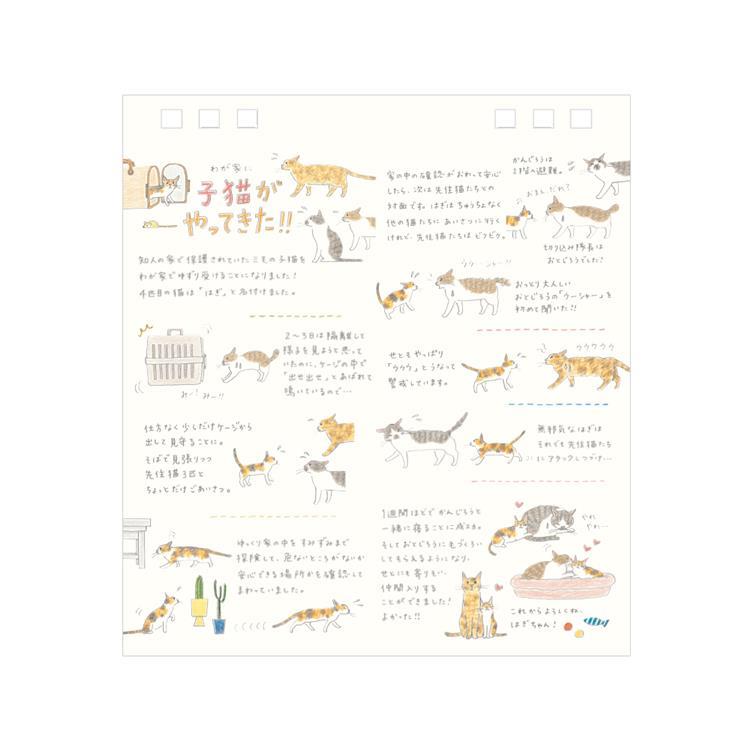 わが家に
子猫が
やってきた!!
知人の家で保護されていたミモの子猫を
わが家でゆずり受けることになりました!
4匹目の猫は「はぎ」と名付けました。
みー! みー!!
2〜3日は隔離して
様子を見ようと思って
いたのに、ケージの中で
「出せ出せ」とあばれて
鳴いているので…
仕方なく少しだけケージから
出して見守ることに。
そばで見張りつつ
先住猫3匹と
ちょっとだけごあいさつ。
ゆっくり家の中をすみずみまで
探険して、危ないところがないか
安心できる場所かを確認して
まわっていました。
家の中の確認がおわって安心
したら、次は先住猫たちとの
対面です。はぎはちゅうちょなく
他の猫たちにあいさつに行く
けれど、先住猫たちはビクビク。
かんじろうは
2階へ避難。
おまえ、だれ?
切り込み隊長は
おとじろうでした!
ウウーシャー!!
おっとり大人しい
おとじろうの「ウーシャー」を
初めて聞いた!!
せともやっぱり
「ウウウ」とうなって
警戒しています。
ウウウウウ
無邪気なはぎは
それでも先住猫たち
にアタックしつづけ…
1週間ほどでかんじろうと
一緒に寝ることに成功。
そしておとじろうにも毛づくろい
してもらえるようになり、
せとにも寄りそい、
仲間入りする
ことができました!
よかった!!
やれ
やれ…
これからよろしくね、
はぎちゃん!